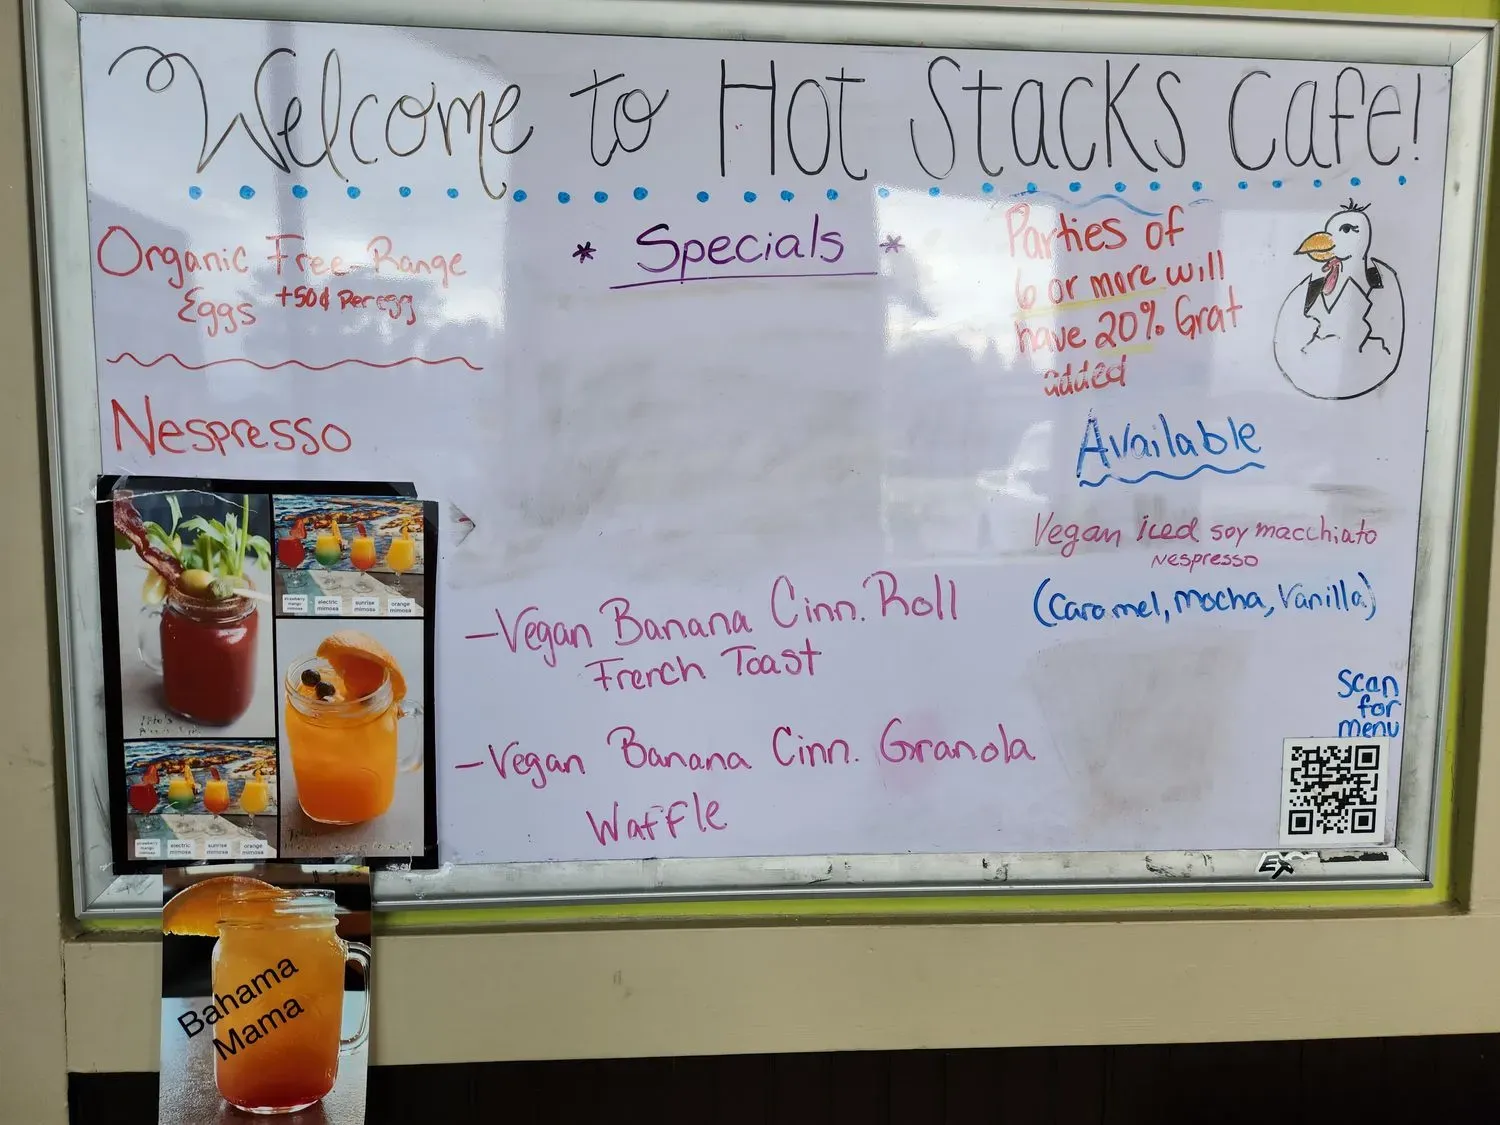 Welcome to Hot Stacks Cafe!
Organic Free-Range
Eggs +50¢ Per egg
Nespresso
* Specials *
Parties of
6 or more will
have 20% Grat
added
Available
Vegan iced soy macchiato
Nespresso
(Caramel, Mocha, Vanilla)
-Vegan Banana Cinn. Roll
French Toast
-Vegan Banana Cinn. Granola
Waffle
Scan
for
menu
strawberry
mango
mimosa
electric
mimosa
sunrise
mimosa
orange
mimosa
strawberry
mango
mimosa
electric
mimosa
sunrise
mimosa
orange
mimosa
Bahama
Mama